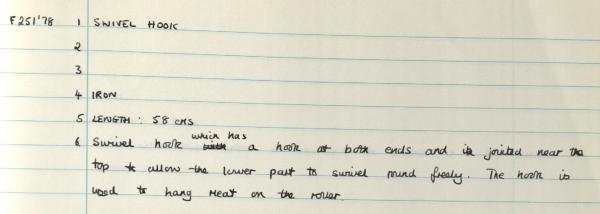 F251'78 1 SWIVEL HOOK
2
3
4 IRON
5 LENGTH : 58 CMS
6 Swivel hook which has a hook at both ends and is jointed near the
top to allow the lower part to swivel round freely. The hook is
used to hang meat on the roller.